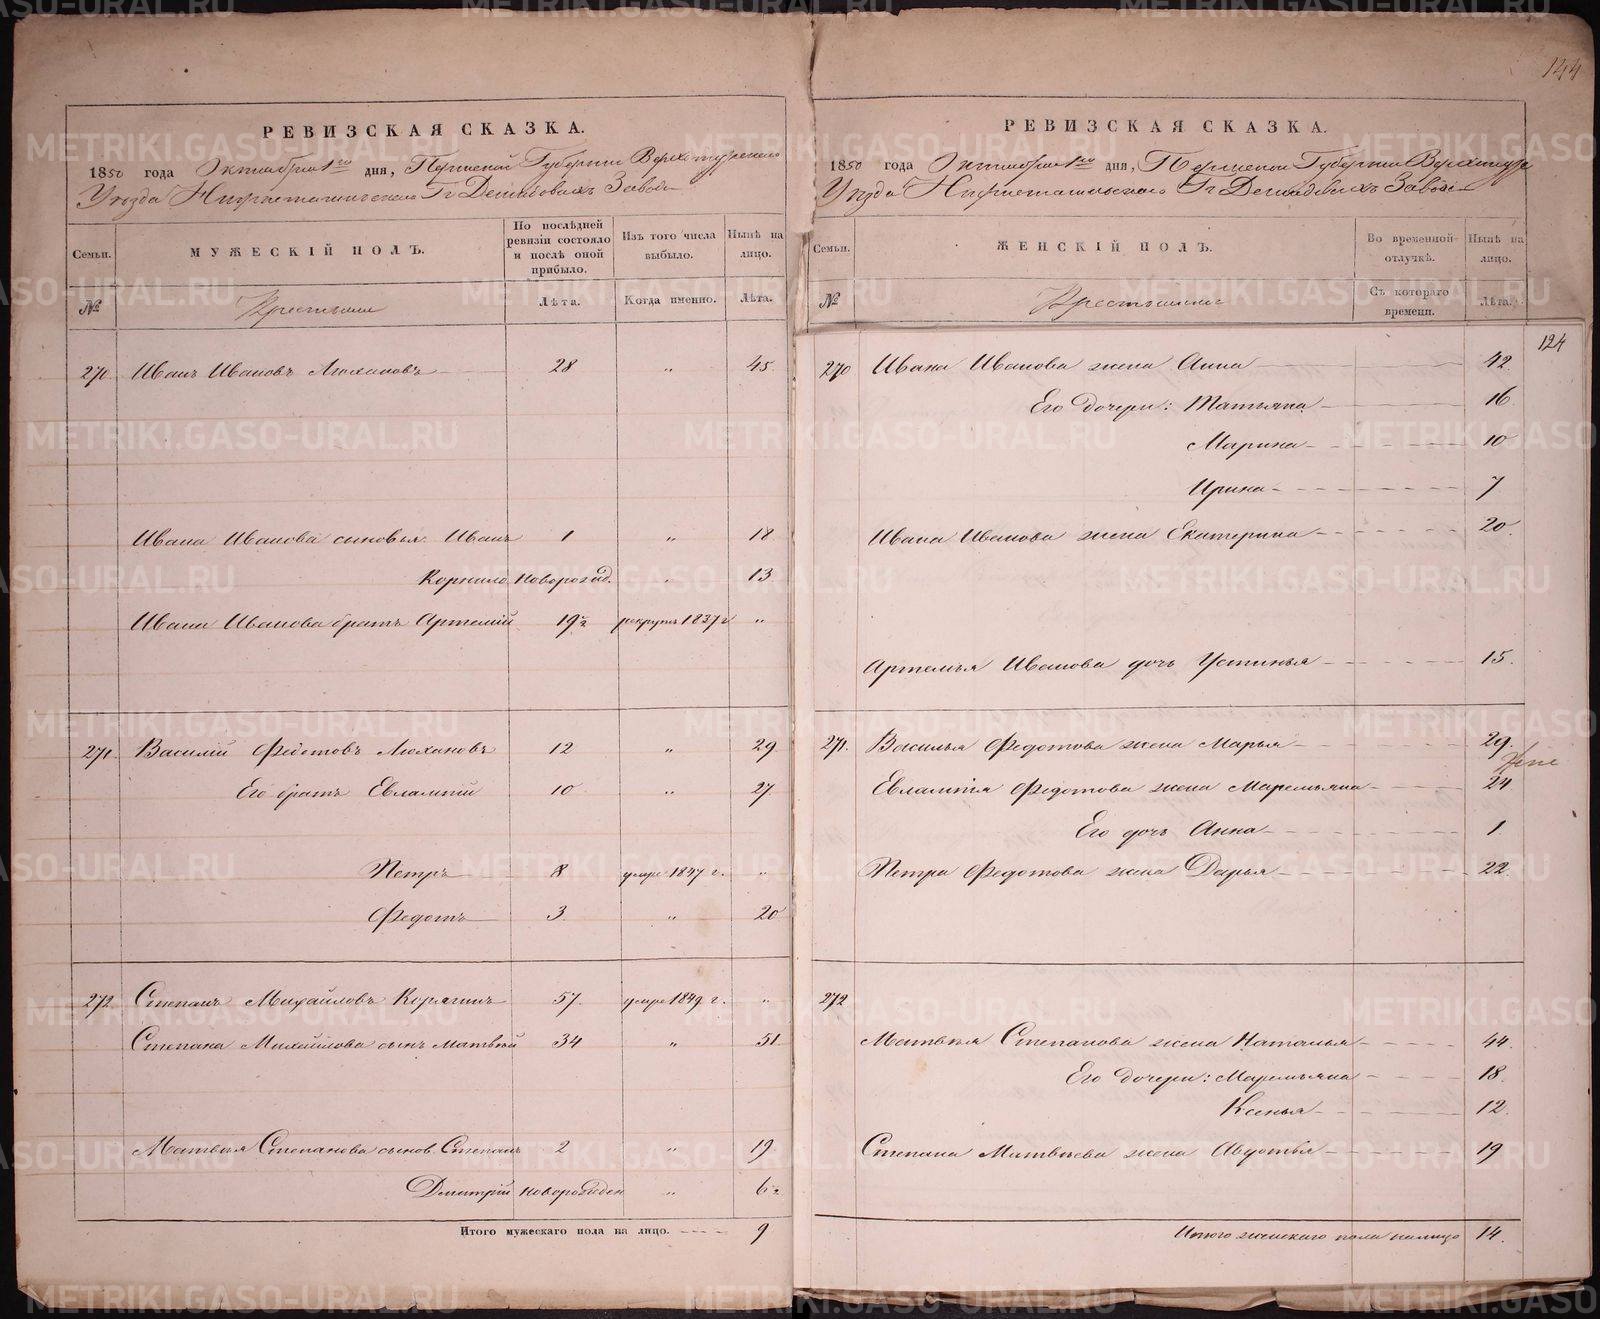 144
РЕВИЗСКАЯ СКАЗКА.
1850 года Октября 1го дня, Пермской Губернии Верхотурскаго
Уезда Нижнетагильскаго Гг Демидовыхъ Завода
Семьи.
МУЖЕСКІЙ ПОЛЪ.
По послѣдней ревизіи состояло и послѣ оной прибыло.
Изъ того числа выбыло.
Нынѣ на лицо.
№
Крестьяне
Лѣта.
Когда именно.
Лѣта.
270 Иванъ Ивановъ Люхановъ 28 „ 45
Ивана Иванова сыновья: Иванъ 1 „ 18
Корнило новорожд. „ 13
Ивана Иванова братъ Артемій 19½ рекрутъ 1837 г „
271. Василій Федотовъ Люхановъ 12 „ 29
Его братъ Евлампій 10 „ 27
Петръ 8 умре 1847 г. „
Федотъ 3 „ 20
272 Степанъ Михайловъ Корягинъ 57. умре 1849 г. „
Степана Михайлова сынъ Матвѣй 34 „ 51
Матвѣя Степанова сынов. Степанъ 2 „ 19
Дмитрій новорожден „ 6½
Итого мужескаго пола на лицо. 9
РЕВИЗСКАЯ СКАЗКА.
1850 года Октября 1го дня, Пермской Губернии Верхотур
Уезда Нижнетагильскаго Гг Демидовыхъ Завода
Семьи.
ЖЕНСКІЙ ПОЛЪ.
Во временной отлучкѣ.
Нынѣ на лицо.
№
Крестьянки
Съ котораго времени.
Лѣта.
124
270 Ивана Иванова жена Анна 42
Его дочери: Татьяна 16
Марина 10
Ирина 7
Ивана Иванова жена Екатерина 20
Артемья Иванова дочь Устинья 15.
271. Василья Федотова жена Марья 29.
Евлампія Федотова жена Маремьяна 24
Его дочь Анна 1.
Петра Федотова жена Дарья 22
272
Матвѣя Степанова жена Наталья 44
Его дочери: Маремьяна 18.
Ксенья 12.
Степана Матвѣева жена Авдотья 19
Итого женскаго пола налицо 14.
METRIKI.GASO-URAL.RU